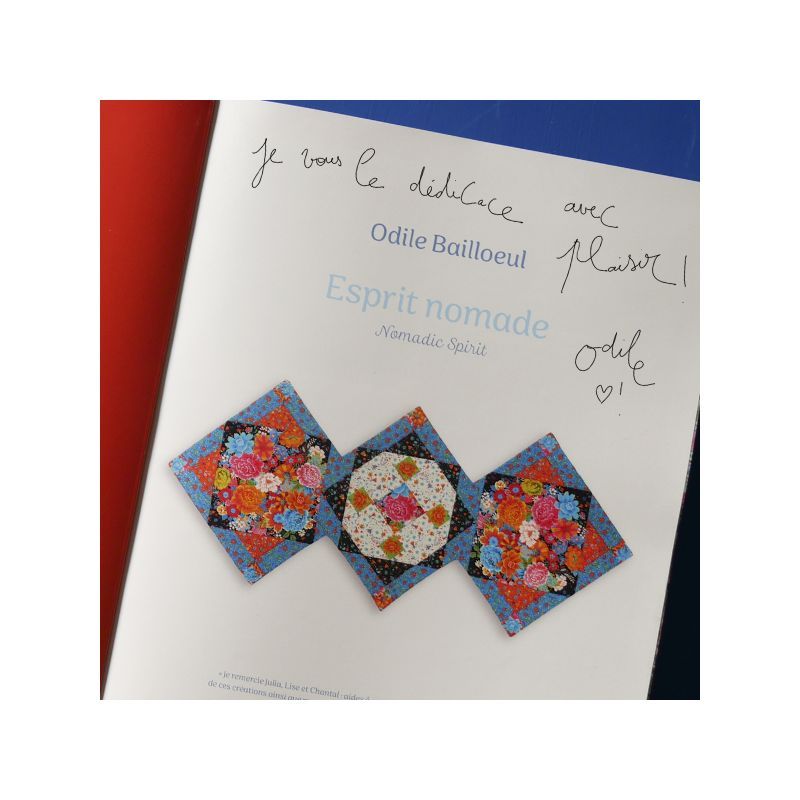 Je vous le dédicace avec
plaisir !
Odile Bailloeul
Esprit nomade
Nomadic Spirit
Odile
♡!
« Je remercie Julia, Lise et Chantal : aides
de ces créations ainsi que